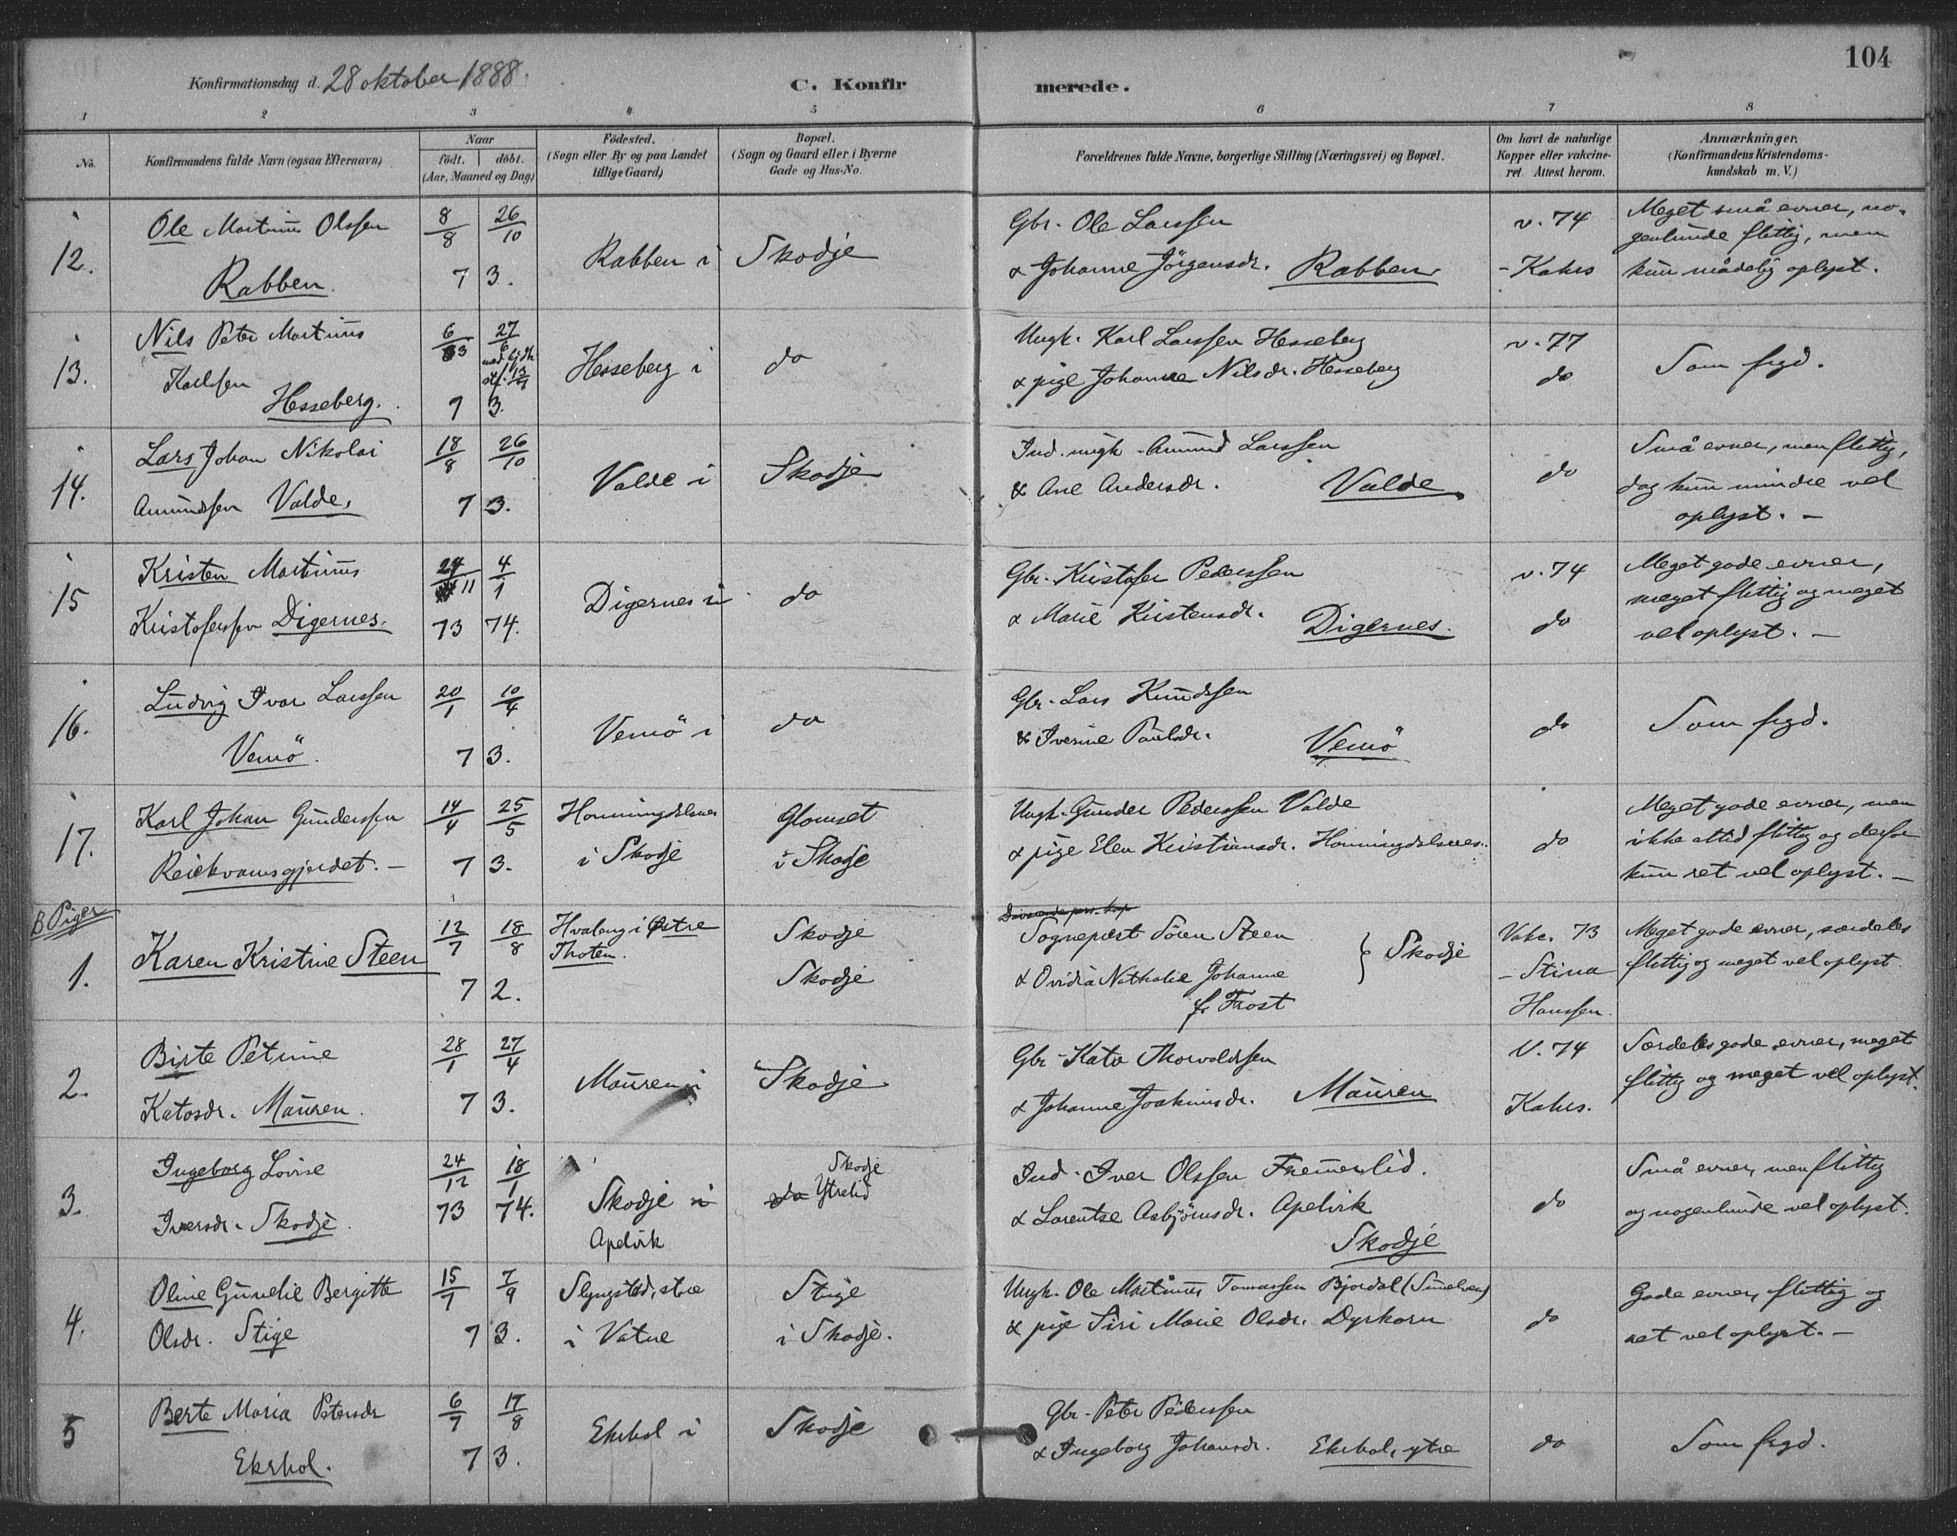 104
Konfirmationsdag d. 28 oktober 1888.
C. Konfirmerede.
1 2 3 4 5 6 7 8
No.
Konfirmandens fulde Navn (ogsaa Efternavn)
Naar
födt. | döbt.
(Aar, Maaned og Dag)
Födested.
(Sogn eller By og paa Landet
tillige Gaard)
Bopæl.
(Sogn og Gaard eller i Byerne
Gade og Hus-No.
Forældrenes fulde Navne, borgerlige Stilling (Næringsvei) og Bopæl.
Om havt de naturlige
Kopper eller vakcine-
ret. Attest herom.
Anmærkninger.
(Konfirmandens Kristendoms-
kundskab m. V.)
12.
Ole Martinus Olssen
Rabben.
8/8 26/10
7 3.
Rabben i
Skodje
Gbr. Ole Larssen
& Johanne Jörgensdr. Rabben.
v. 74
- Kahrs
Meget små evner, no-
genlunde flittig, men
kun mådelig oplyst.
13.
Nils Peter Martinus
Karlsen
Hesseberg.
6/3 27/6
7 3.
Hesseberg i
do
Ungk. Karl Larssen Hesseberg
& pige Johanne Nilsdr. Hesseberg
v. 77
do
Som frgd.
14.
Lars Johan Nikolai
Amundssen Valde.
18/8 26/10
7 3.
Valde i
Skodje
Ind. ungk. Amund Larssen
& Ane Andersdr. Valde.
do
Små evner, men flittig,
dog kun mindre vel
oplyst. -
15
Kristen Martinus
Kristofersen Digernes.
24/11 4/1
73 74.
Digernes i
do
Gbr. Kristofer Pederssen
& Marie Kristensdr. Digernes.
v. 74
do
Meget gode evner,
meget flittig og meget
vel oplyst. -
16.
Ludvig Ivar Larssen
Vemö.
20/1 10/4
7 3.
Vemö i
do
Gbr. Lars Knudssen
& Iverine Paulsdr. Vemö
do
Som frgd.
17.
Karl Johan Gunderssen
Reiekvamsgjerdet. -
14/4 25/5
7 3.
Honningdalsnes
i Skodje
Glomset
i Skodje
Ungk. Gunder Pederssen Valde
& pige Elen Kristiansdr. Honningdalsnes.
do
Meget gode evner, men
ikke altid flittig og derfor
kun ret vel oplyst. -
B Piger
1.
Karen Kristine Steen
12/7 18/8
7 2.
Hvalong i Östre
Thoten.
Skodje
Skodje
Sogneprest Sören Steen
& Ovidia Nathalie Johanne
f. Frost } Skodje
Vakc. 73
- Stina
Hanssen.
Meget gode evner, særdeles
flittig og meget vel oplyst
2.
Birte Petrine
Katosdr. Mauren.
28/1 27/4
7 3.
Mauren i
Skodje
Gbr. Kato Thorvaldsen
& Johanne Joakimsdr. Mauren
V. 74
Kahrs.
Særdeles gode evner, meget
flittig og meget vel oplyst.
3.
Ingeborg Lovise
Iversdr. Skodje.
24/12 18/1
73 74.
Skodje i
Apelvik
Skodje
do Ytrelid
Ind. Iver Olssen Fremerlid.
& Lorentse Asbjörnsdr. Apelvik
Skodje
do
Små evner, men flittig
og nogenlunde vel oplyst.
4.
Oline Gunelie Bergitte
Olsdr. Stige
15/7 7/9
7 3.
Slyngstad, store
i Vatne
Stige
i Skodje.
Ungk. Ole Martinus Tomassen Bjordal
& pige Siri Marie Olsdr. Dyrkorn
do
Gode evner, flittig og
ret vel oplyst. -
5
Berte Maria Petersdr
Ekrhol.
6/7 17/8
7 3.
Ekrhol i
Skodje
Gbr. Peter Pederssen
& Ingeborg Johansdr. Ekrhol, ytre
do
Som frgd.